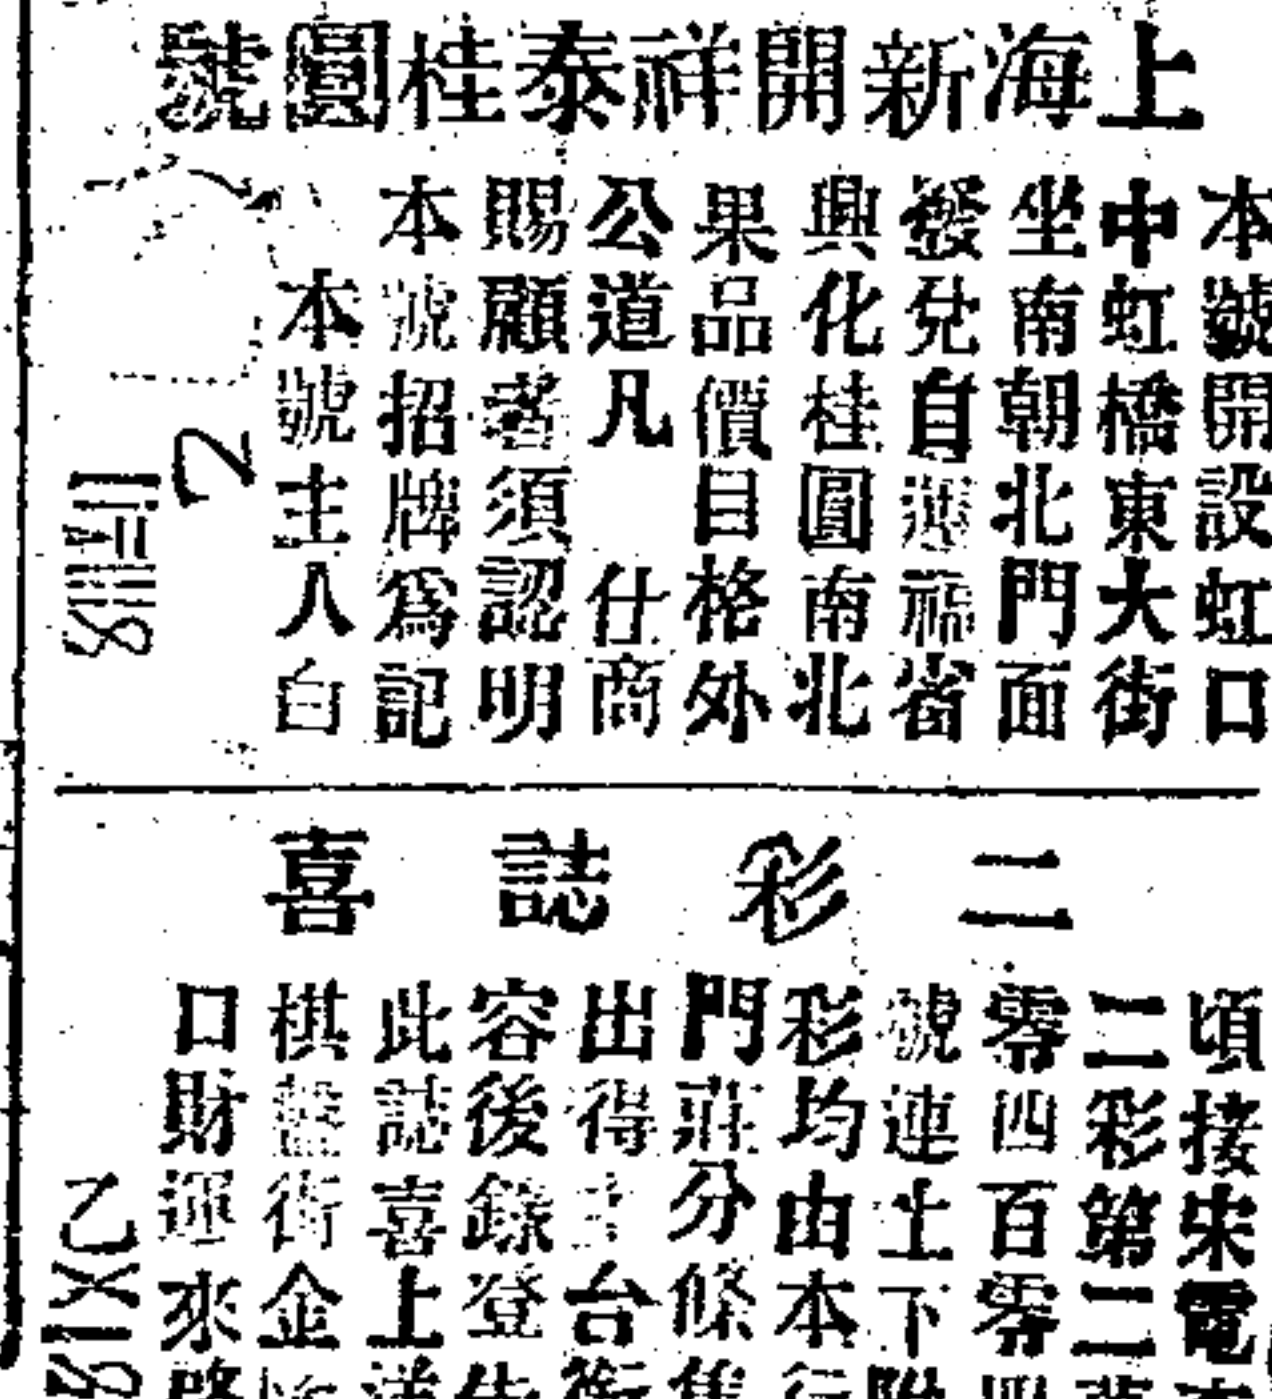 上海新開祥泰桂圓號
本號開設虹口
中虹橋東大街
坐南朝北門面
發兌自運福省
興化桂圓南北
果品價目格外
公道凡 仕商
賜顧者須認明
本號招牌為記
本號主人白
2
二彩誌喜
頃接宋電
二彩第二
零四百零
號連上下
彩均由本
門莊分條
出得 台
容後錄登
此誌喜上
棋盤街金
口財運來